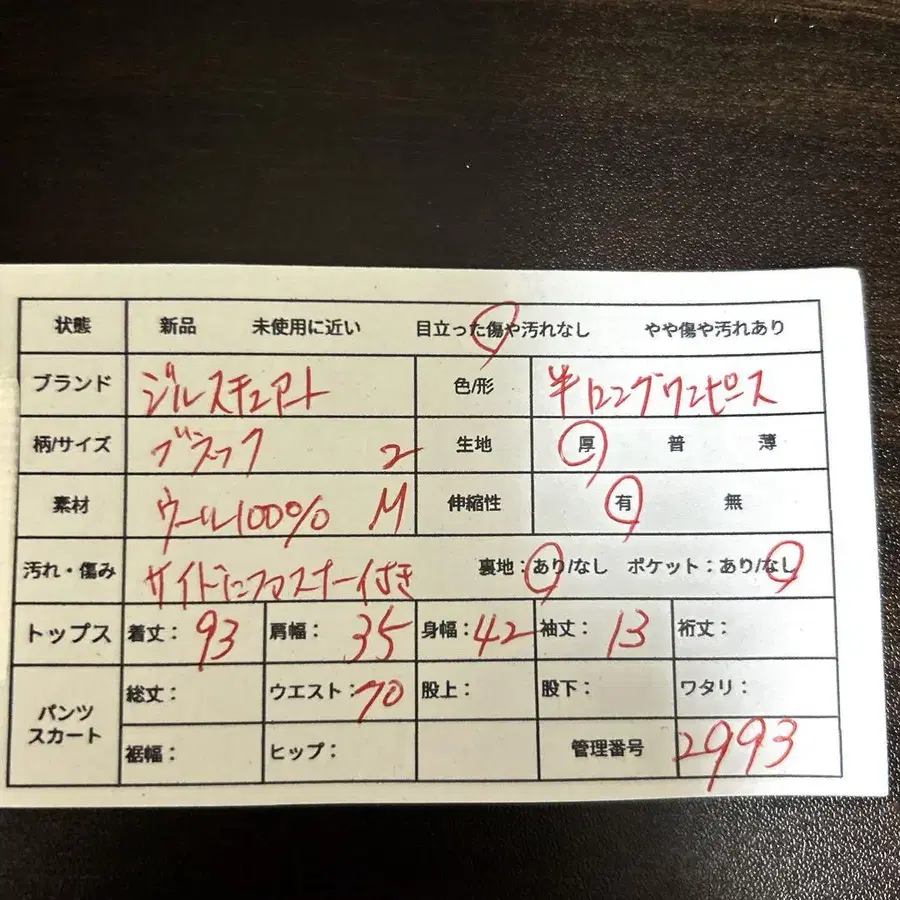 状態 新品 未使用に近い 目立った傷や汚れなし やや傷や汚れあり
ブランド ジルスチュアート 色/形 半ロングワンピース
柄/サイズ ブラック 2 生地 厚 普 薄
素材 ウール100% M 伸縮性 有 無
汚れ・傷み サイドにファスナー付き 裏地：あり/なし ポケット：あり/なし
トップス 着丈： 93 肩幅： 35 身幅： 42 袖丈： 13 裄丈：
パンツ スカート 総丈： ウエスト： 70 股上： 股下： ワタリ：
裾幅： ヒップ： 管理番号 2993